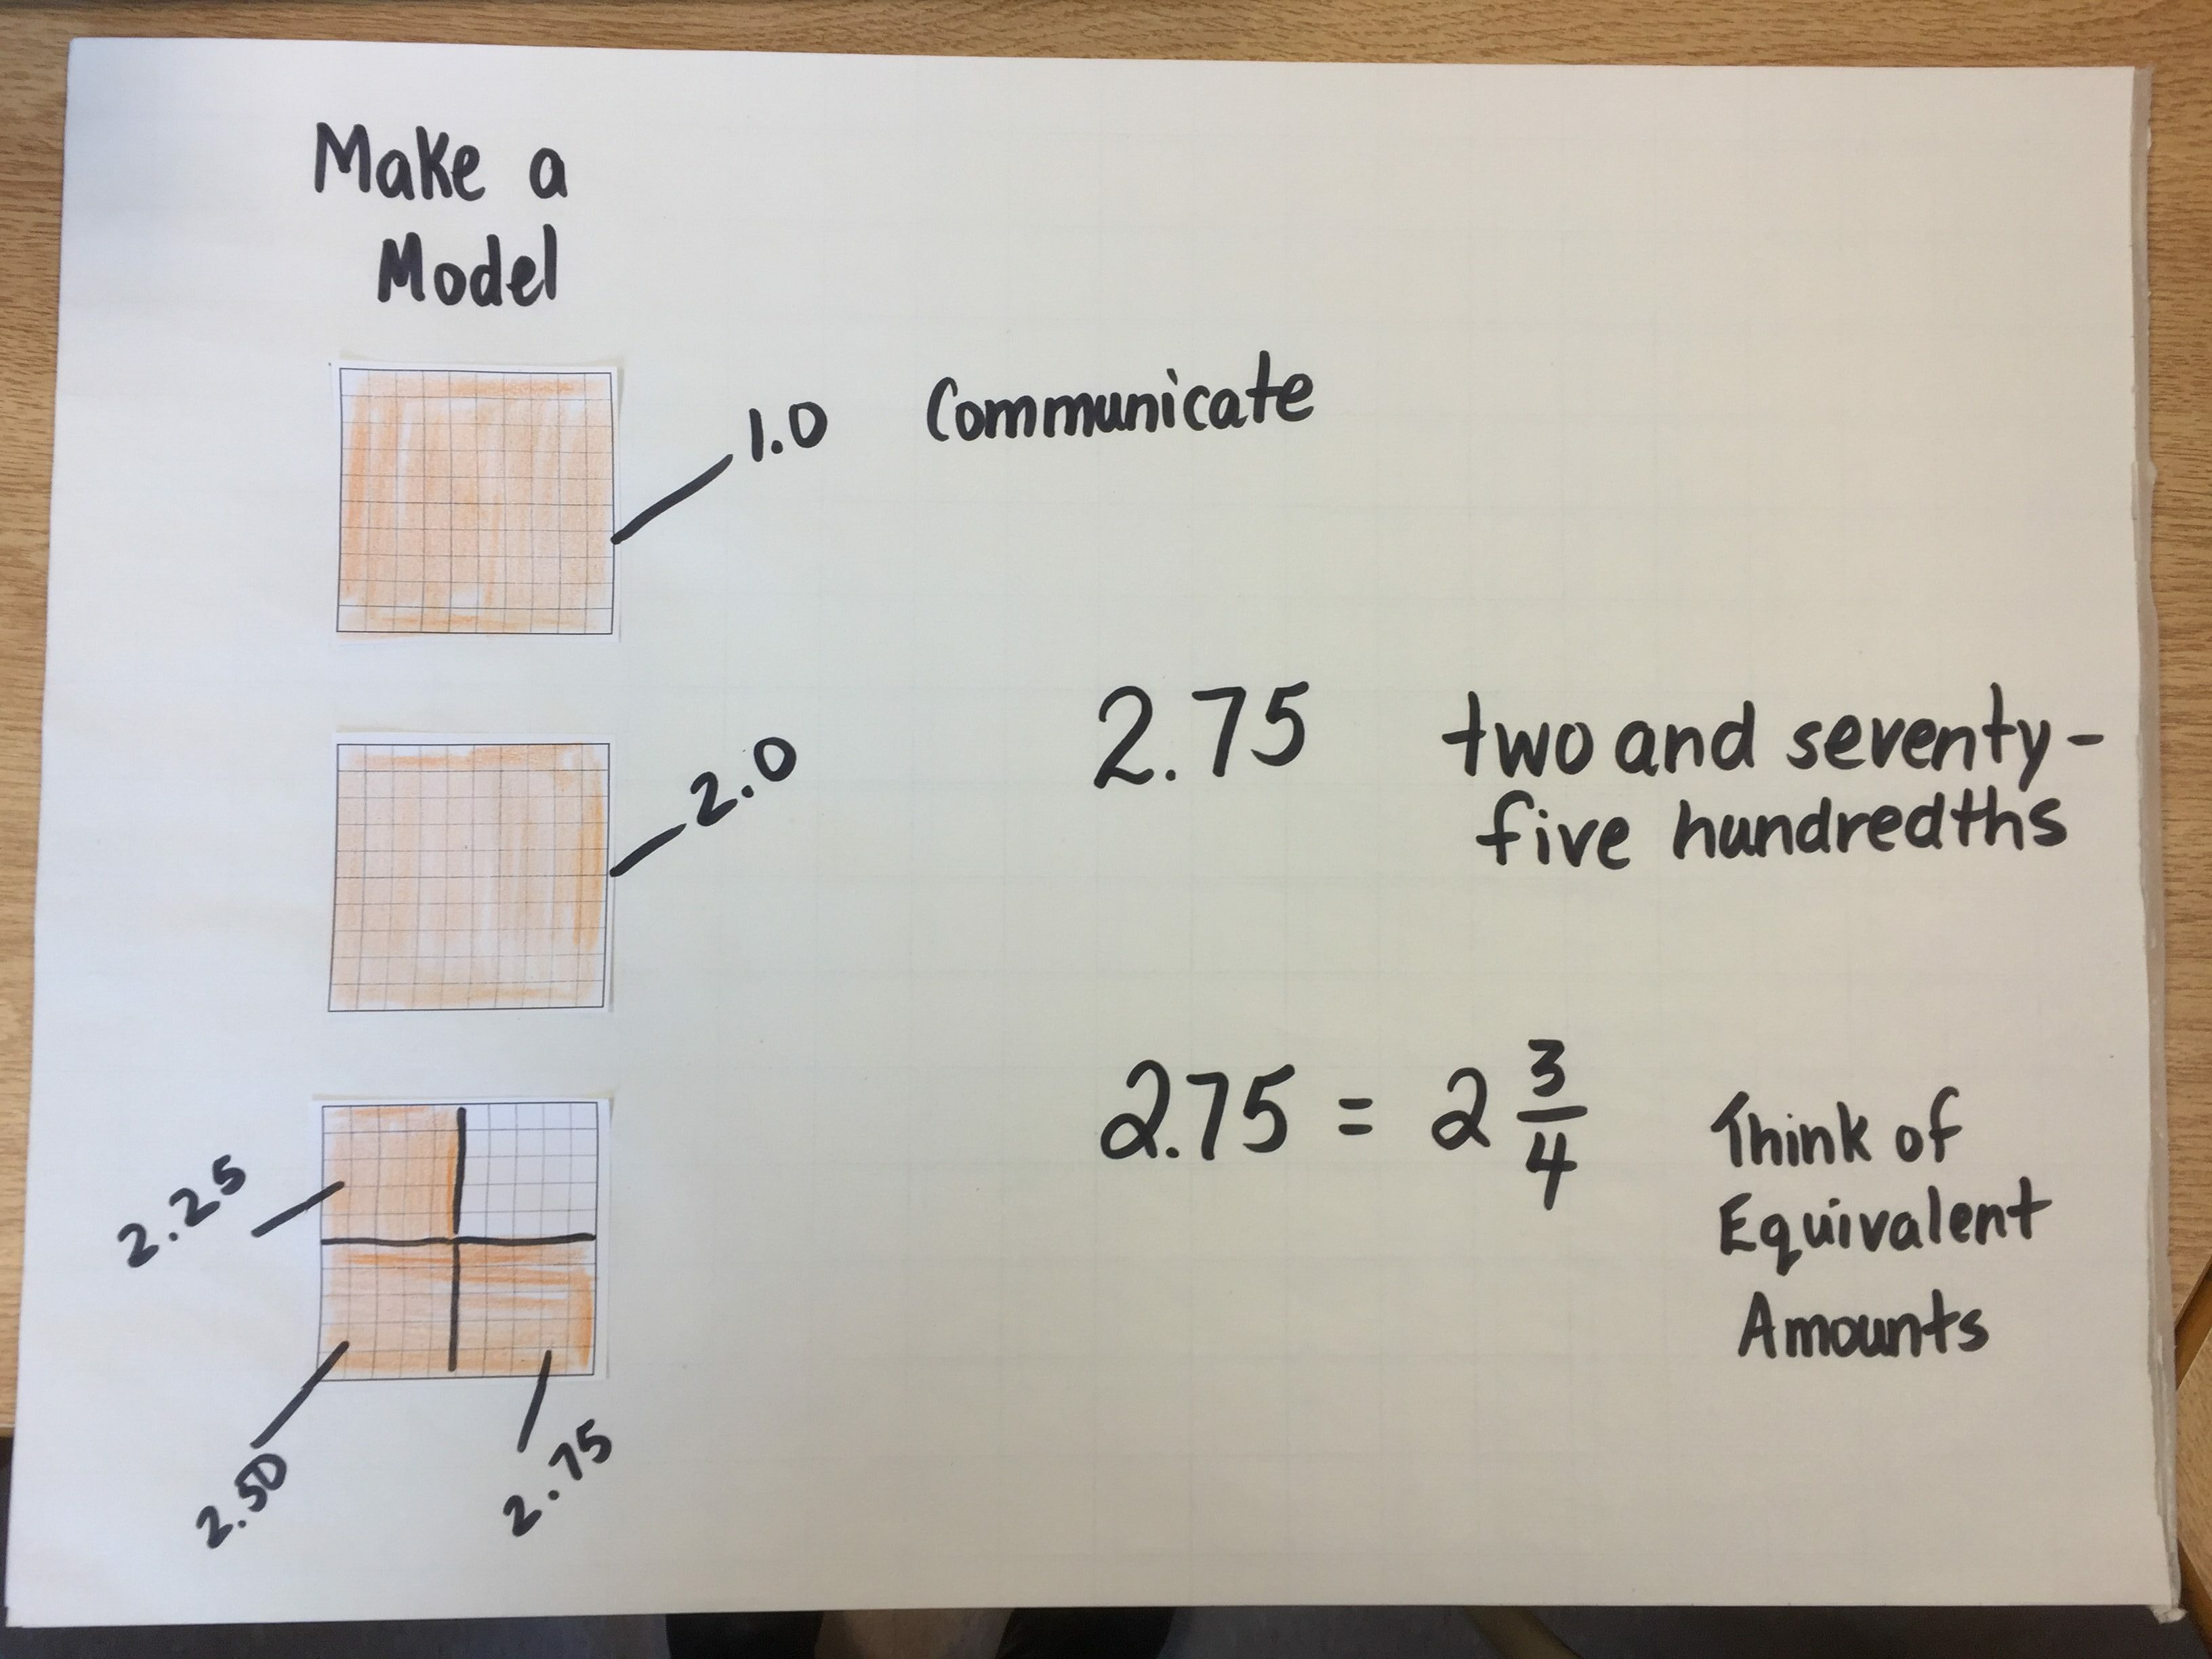 Make a
Model
1.0
Communicate
2.0
2.75
two and seventy-
five hundredths
2.25
2.50
2.75
2.75 = 2 3/4
Think of
Equivalent
Amounts